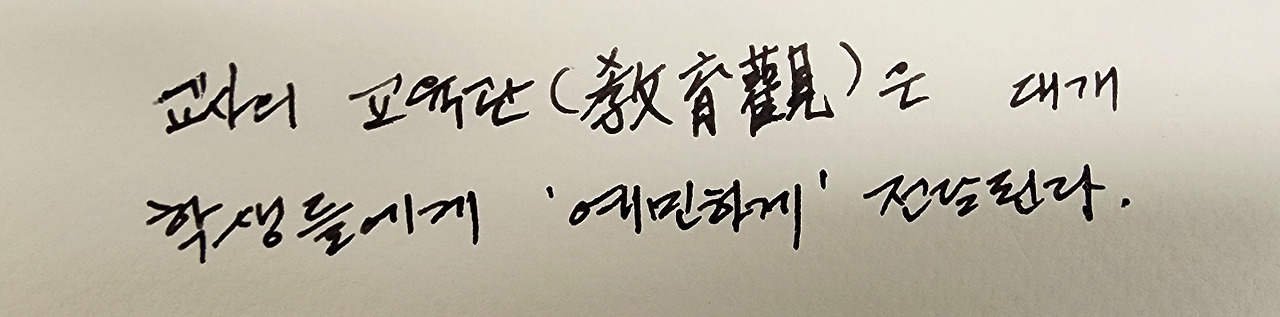 교사의 교육관(敎育觀)은 대개
학생들에게 '예민하게' 전달된다.